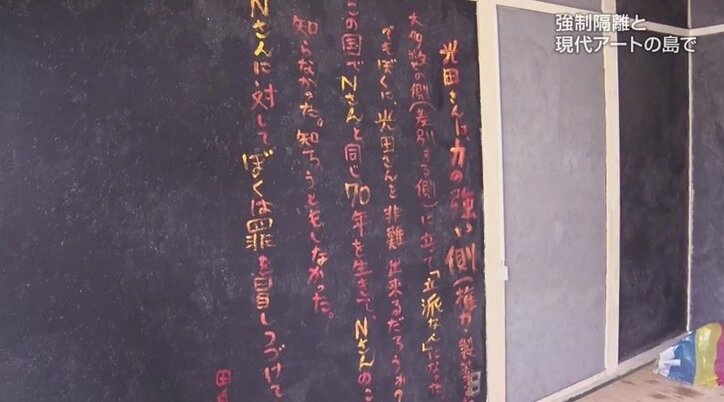 強制隔離と
現代アートの島で
光田さんは力の強い側(権力・製薬
大多数の側(差別する側)に立て「立派な人」になった。
でもぼくに、光田さんを非難出来るだろうか?
この国でNさんと同じ70年を生きて、Nさんのこ
知らなかった。知ろうともしなかった。
Nさんに対してぼくは罪を冒しつづけて
田